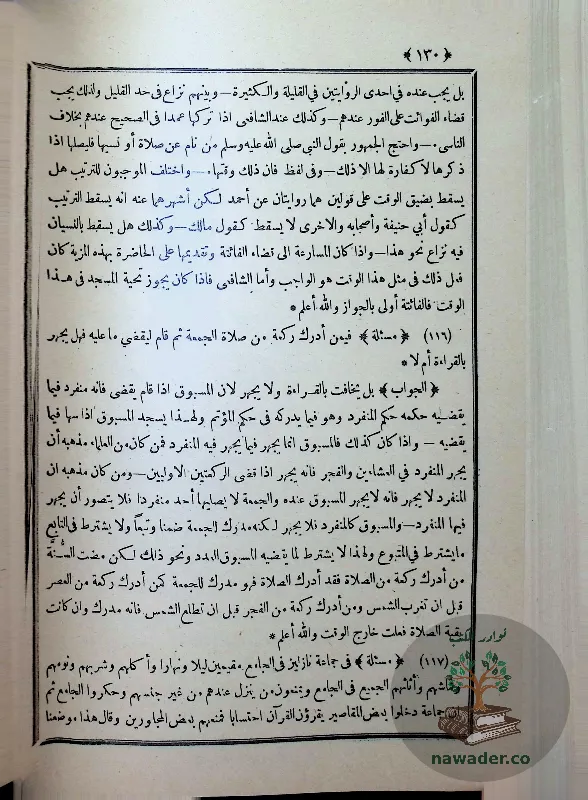 ﴿ ١٣٠ ﴾
بل يجب عنده في احدى الروايتين في القليلة والكثيرة — وبينهم نزاع في حد القليل ولذلك يجب
قضاء الفوائت على الفور عندهم — وكذلك عند الشافعى اذا تركها عمدا في الصحيح عندهم بخلاف
الناسى ۰ — واحتج الجمهور بقول النبي صلى الله عليه وسلم من نام عن صلاة أو نسيها فليصلها اذا
ذكرها لا كفارة لها الا ذلك — وفى لفظ فان ذلك وقتها ۰ — واختلف الموجبون للترتيب هل
يسقط بضيق الوقت على قولين هما روايتان عن أحمد لكن أشهرهما عنه انه يسقط الترتيب
كقول أبي حنيفة وأصحابه والاخرى لا يسقط كقول مالك — وكذلك هل يسقط بالنسيان
فيه نزاع نحو هذا — واذا كان المسارعة الى قضاء الفائتة وتقديمها على الحاضرة بهذه المزية كان
فعل ذلك في مثل هذا الوقت هو الواجب وأما الشافعى فاذا كان يجوز تحية المسجد في هذا
الوقت فالفائتة أولى بالجواز والله أعلم *
(١١٦) ﴿ مسئلة ﴾ فيمن أدرك ركعة من صلاة الجمعة ثم قام ليقضي ما عليه فهل يجهر
بالقراءة أم لا *
﴿ الجواب ﴾ بل يخافت بالقراءة ولا يجهر لان المسبوق اذا قام يقضى فانه منفرد فيما
يقضيه حكمه حكم المنفرد وهو فيما يدركه في حكم المؤتم ولهذا يسجد المسبوق اذا سها فيما
يقضيه — واذا كان كذلك فالمسبوق انما يجهر فيما يجهر فيه المنفرد فمن كان من العلماء مذهبه أن
يجهر المنفرد في العشاءين والفجر فانه يجهر اذا قضى الركعتين الاوليين — ومن كان مذهبه ان
المنفرد لا يجهر فانه لا يجهر المسبوق عنده والجمعة لا يصليها أحد منفردا فلا يتصور أن يجهر
فيها المنفرد — والمسبوق كالمنفرد فلا يجهر لكنه مدرك للجمعة ضمنا وتبعا ولا يشترط في التابع
ما يشترط في المتبوع ولهذا لا يشترط لما يقضيه المسبوق العدد ونحو ذلك لكن مضت السُّنَّة
من أدرك ركعة من الصلاة فقد أدرك الصلاة فهو مدرك للجمعة كمن أدرك ركعة من العصر
قبل ان تغرب الشمس ومن أدرك ركعة من الفجر قبل ان تطلع الشمس فانه مدرك وان كانت
بقية الصلاة فعلت خارج الوقت والله أعلم *
(١١٧) ﴿ مسئلة ﴾ فى جماعة نازلين في الجامع مقيمين ليلا ونهارا وأكلهم وشربهم ونومهم
وقماشهم وأثاثهم الجميع في الجامع ويمنعون من ينزل عندهم من غير جنسهم وحكروا الجامع ثم
جماعة دخلوا بعض المقاصير يقرؤن القرآن احتسابا فمنعهم بعض المجاورين وقال هذا موضعنا
نوادر الكتب
nawader.co